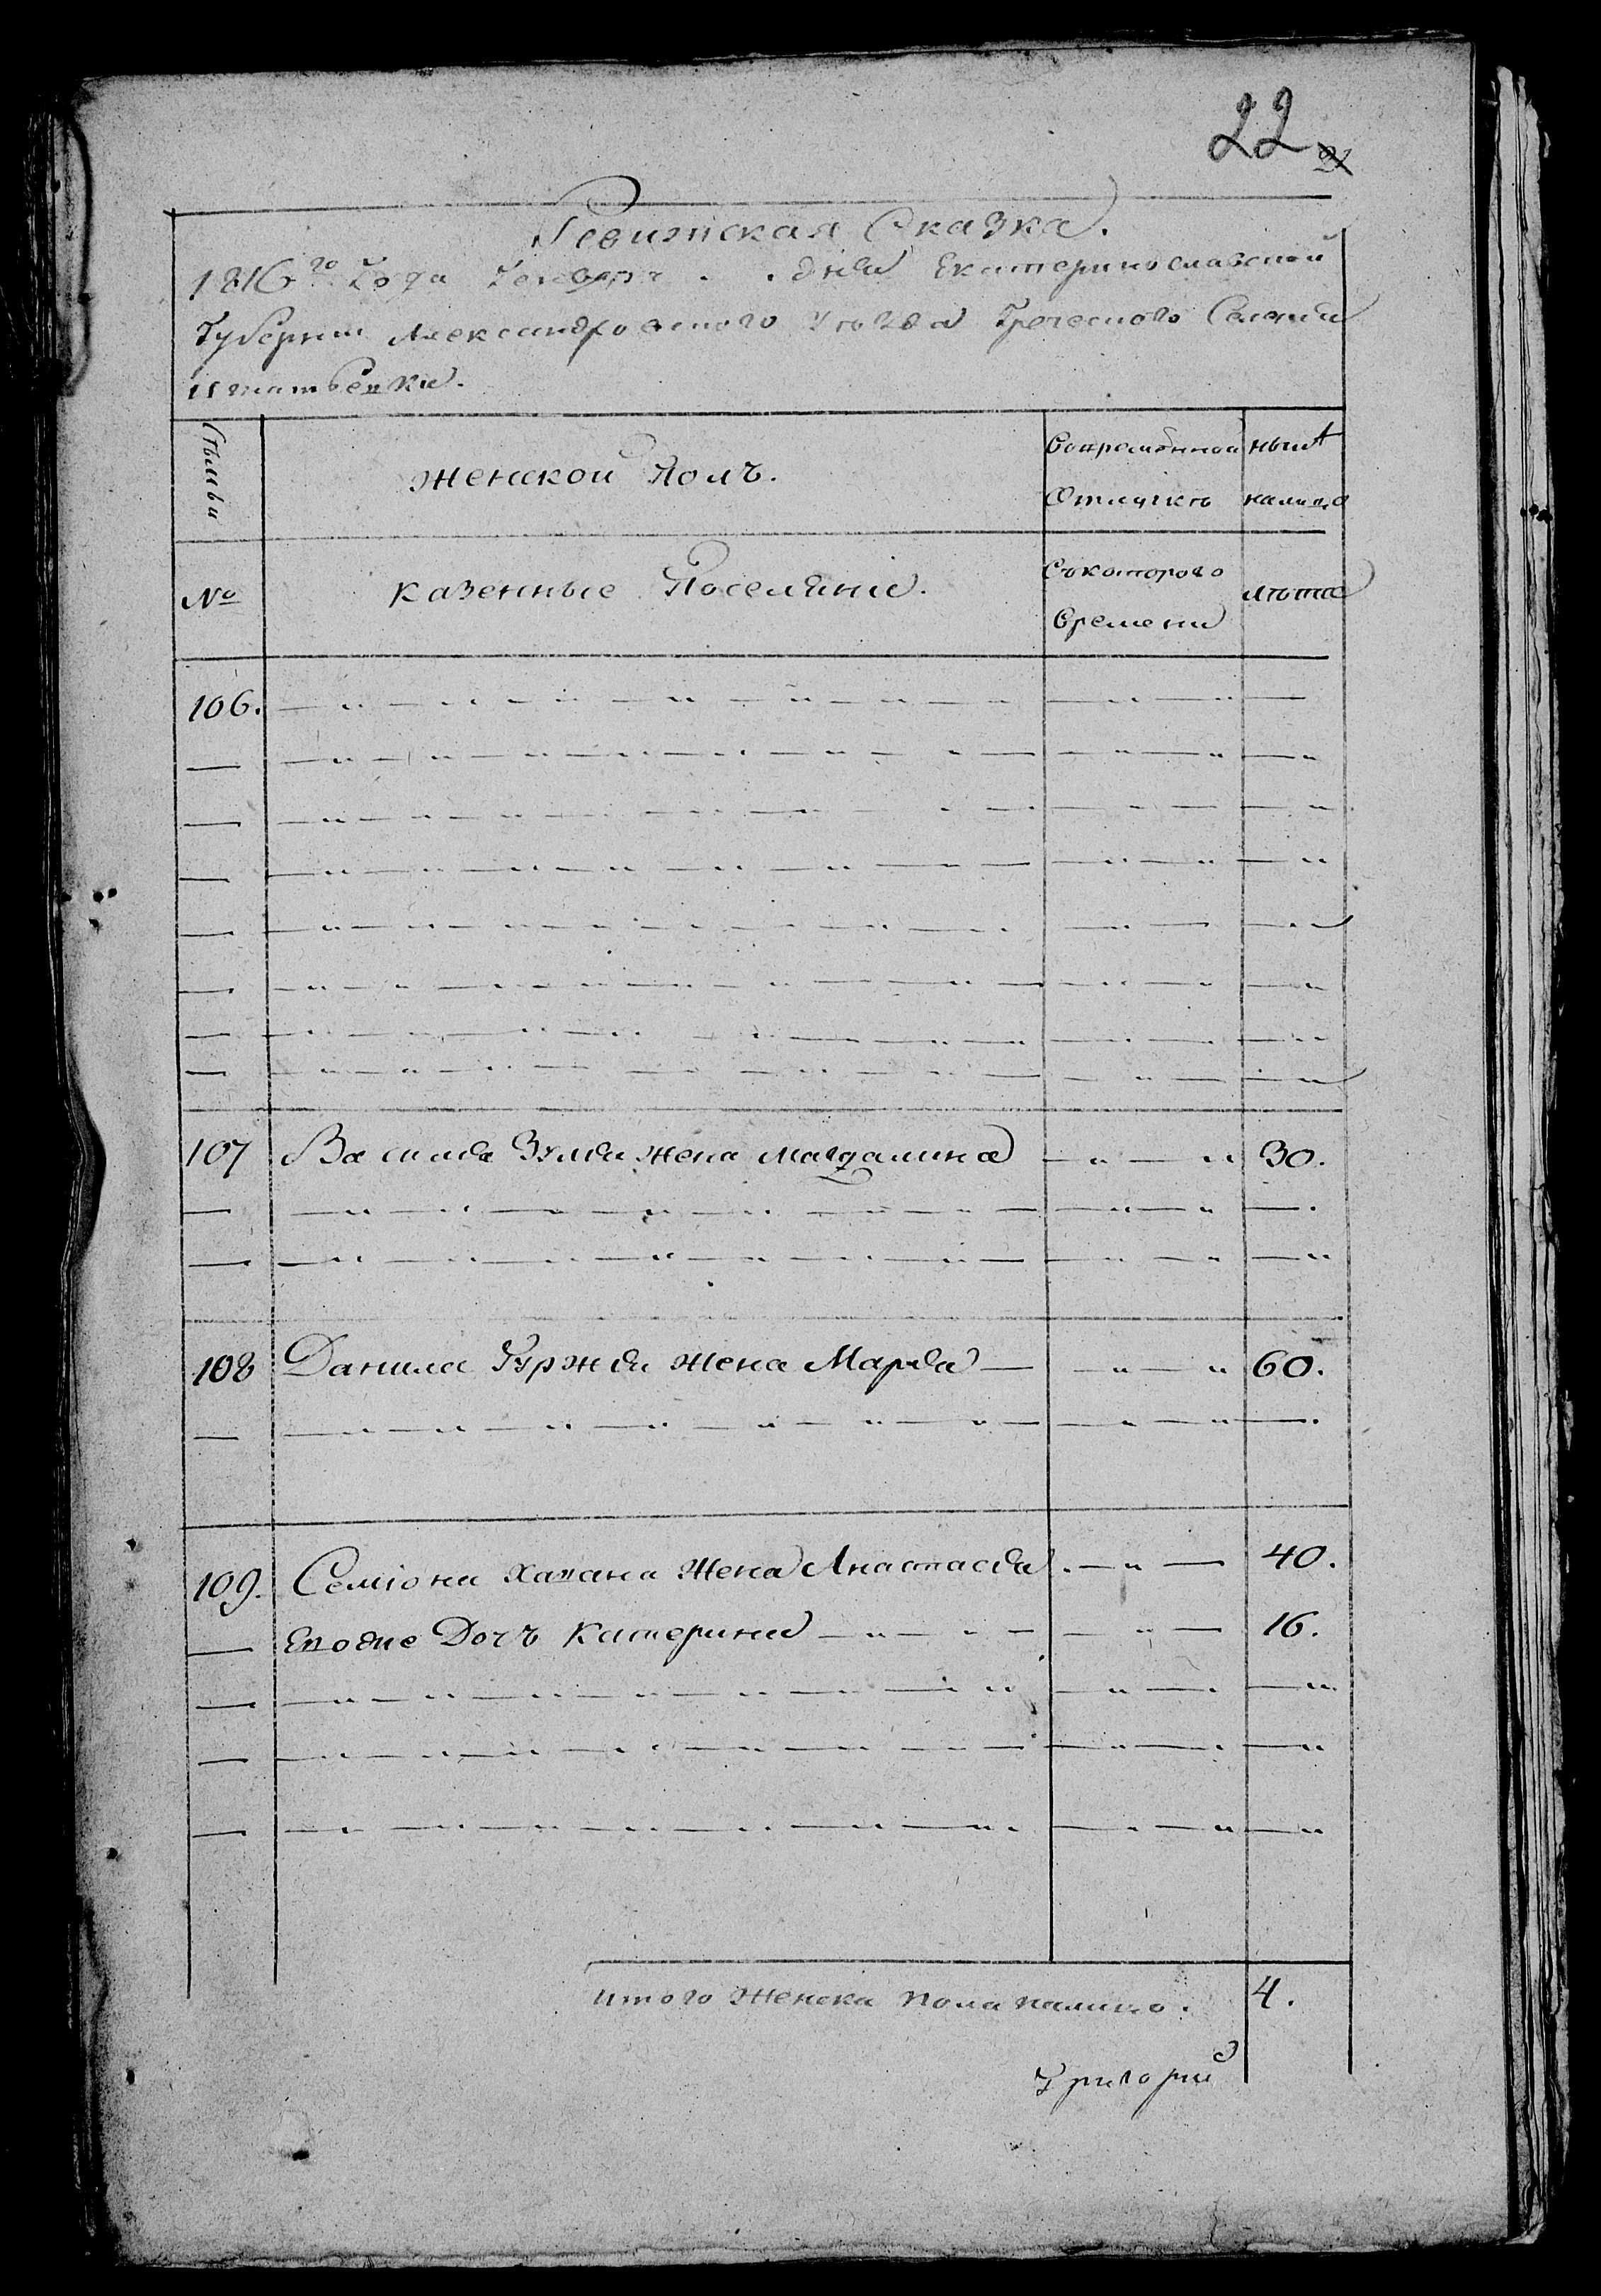 22
Ревижская Сказка.
1816го Года Генваря . . дня Екатеринославской
Губернии Александровскаго Уезда Греческого Селения
Игнатьевки.
Семьи
Женской Полъ.
Вовременной ныне
Отлучке налицо
№
Казенные Поселяне.
Скоторого
Времени
лета
106.
107 Василя Зулы жена Магдалина 30.
108 Данила Гуржи жена Марья 60.
109. Семиона Хапана Жена Анастасия 40.
Евоже Дочъ Катерина 16.
итого Женска пола налицо. 4.
Григорий